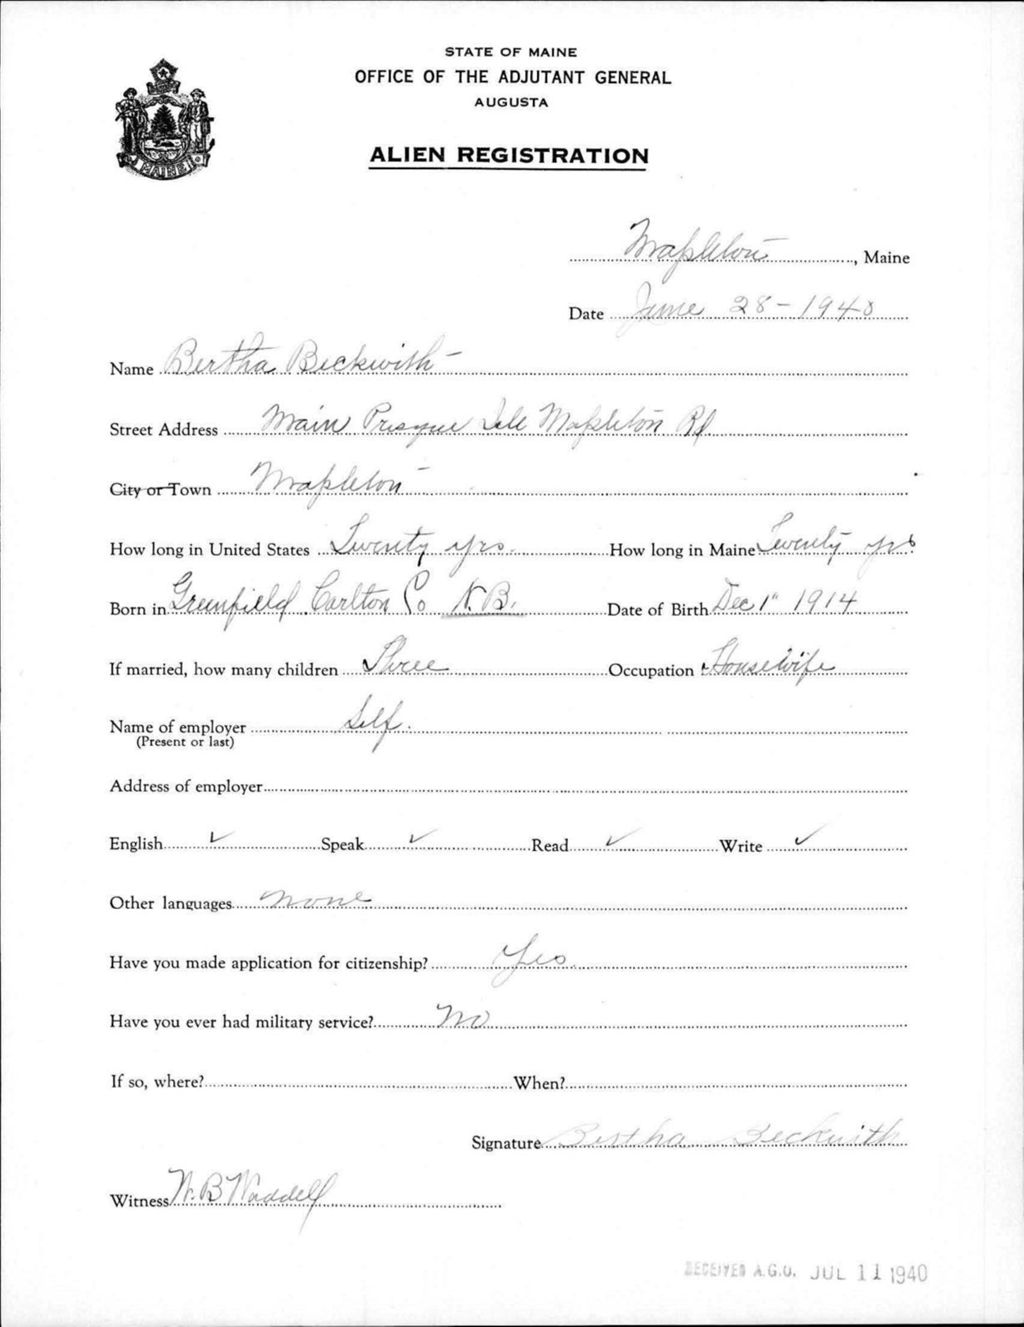 STATE OF MAINE
OFFICE OF THE ADJUTANT GENERAL
AUGUSTA
ALIEN REGISTRATION
MAINE
Mapleton, Maine
Date June 28 - 1940
Name Bertha Beckwith
Street Address Main Presque Isle Mapleton Rd
City or Town Mapleton
How long in United States Twenty yrs. How long in Maine Twenty yrs
Born in Greenfield Carlton Co N.B. Date of Birth Dec 1" 1914
If married, how many children Three Occupation Housewife
Name of employer Self.
(Present or last)
Address of employer
English ✓ Speak ✓ Read ✓ Write ✓
Other languages none
Have you made application for citizenship? Yes
Have you ever had military service? No
If so, where? When?
Signature Bertha Beckwith
Witness W. B Waddell
RECEIVED A.G.O. JUL 11 1940